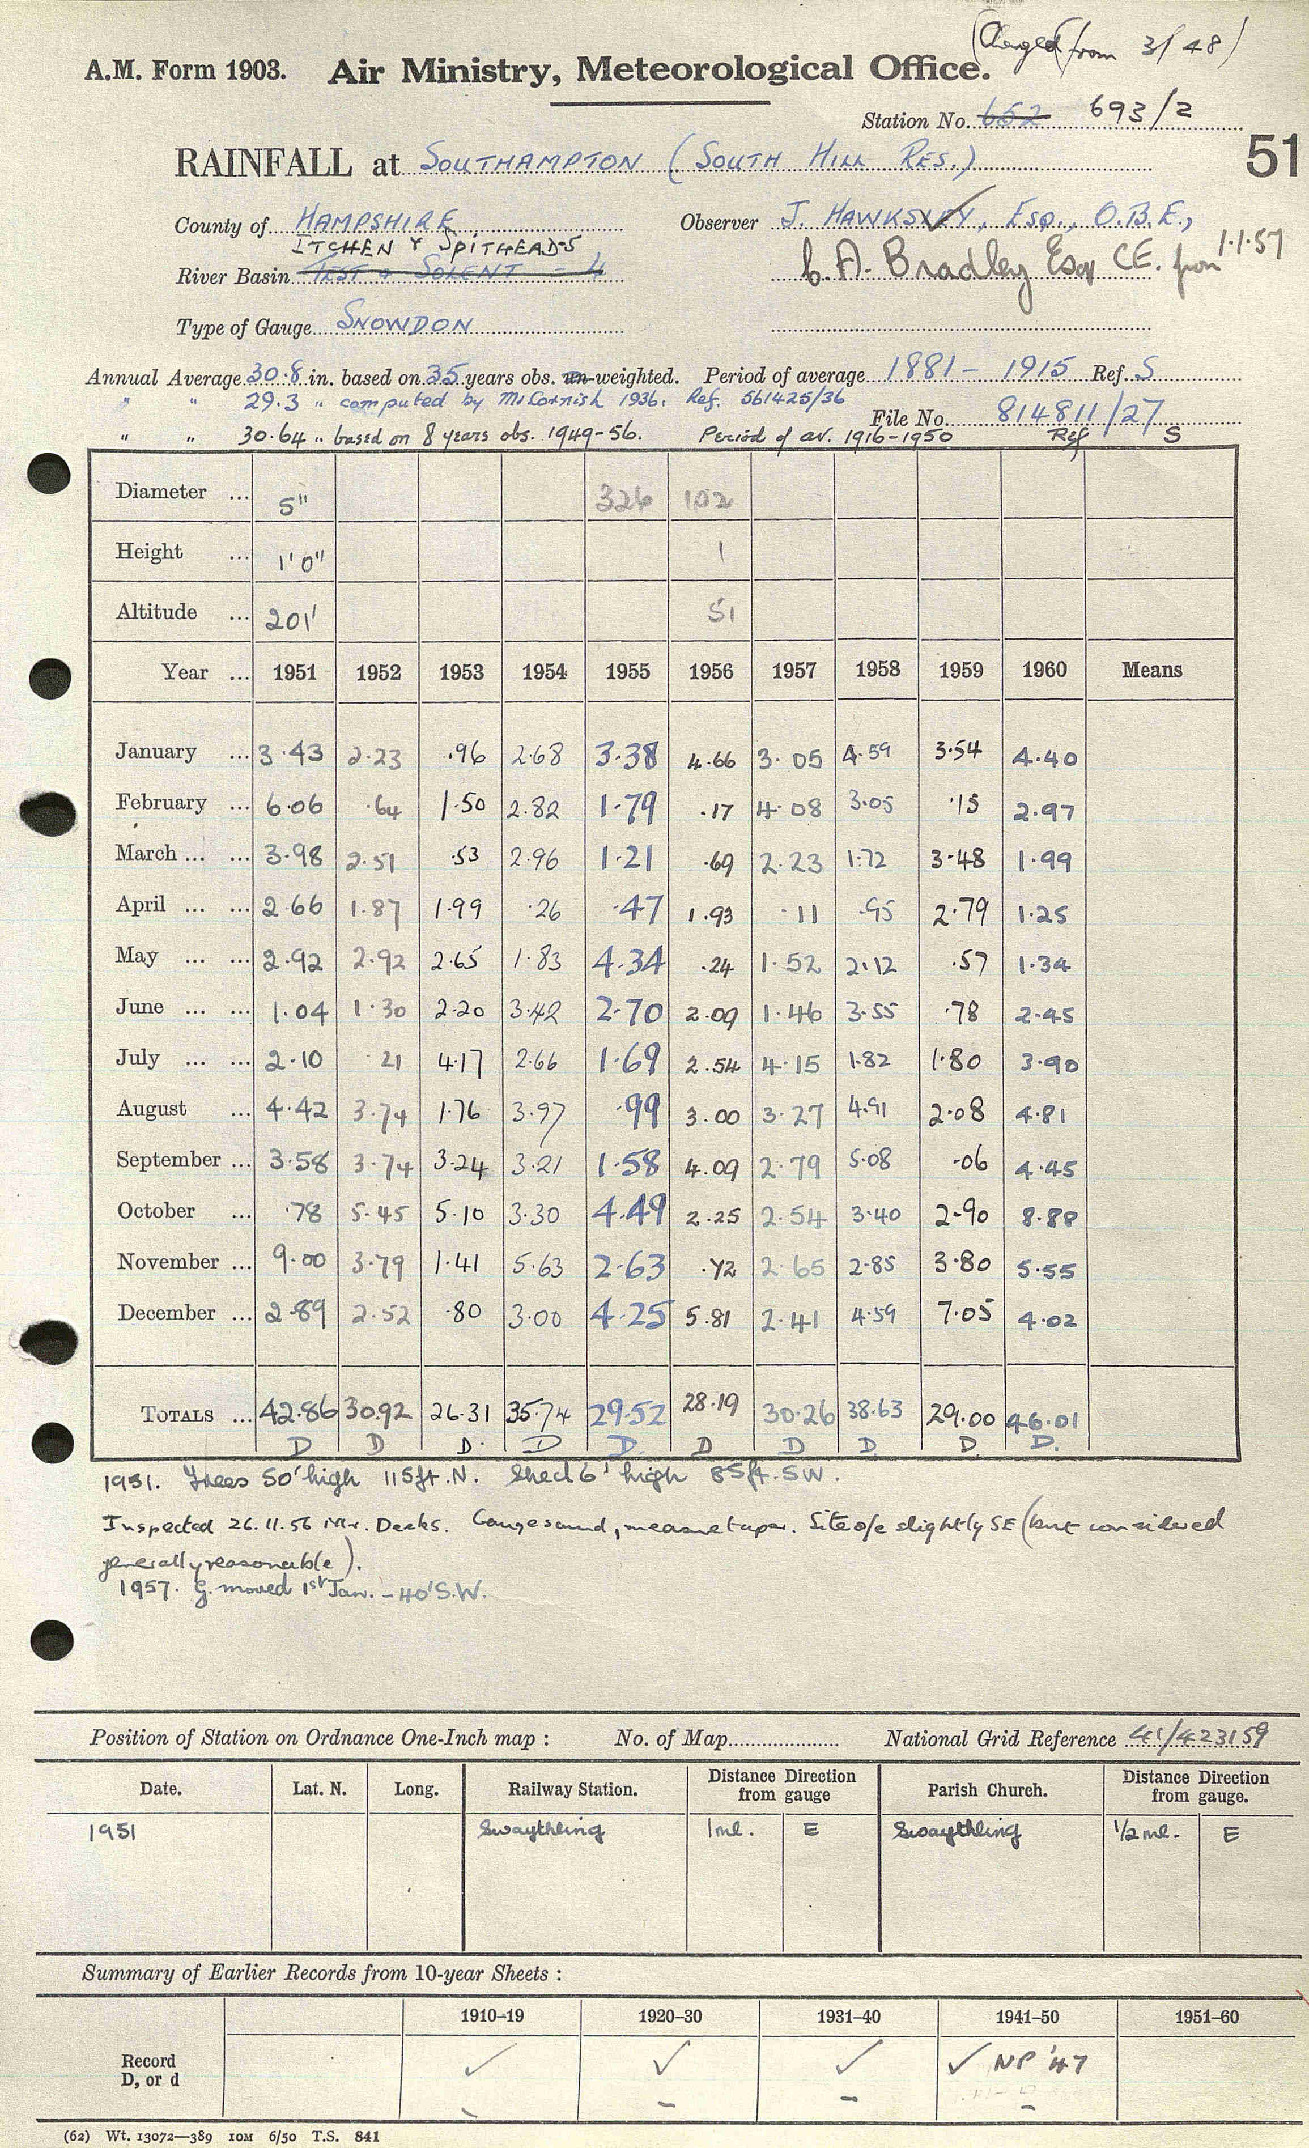 (Changed from 3/48)
A.M. Form 1903. Air Ministry, Meteorological Office.
Station No. 652 693/2
RAINFALL at SOUTHAMPTON (SOUTH HILL RES.) 51
County of HAMPSHIRE Observer J. HAWKSLEY, ESQ., O.B.E.,
ITCHEN & SPITHEADS
River Basin TEST & SOLENT - 4 C. A. Bradley Esq CE. from 1.1.57
Type of Gauge SNOWDON
Annual Average 30.8 in. based on 35 years obs. un-weighted. Period of average 1881 – 1915 Ref. S
" " 29.3 " computed by McCornish 1936. Ref. 561425/36
File No. 814811/27
" " 30.64 " based on 8 years obs. 1949-56. Period of av. 1916-1950 Ref S
Diameter ... 5" 326 102
Height ... 1'0" 1
Altitude ... 201' 51
Year ... 1951 1952 1953 1954 1955 1956 1957 1958 1959 1960 Means
January ... 3.43 2.23 .96 2.68 3.38 4.66 3.05 4.59 3.54 4.40
February ... 6.06 .64 1.50 2.82 1.79 .17 4.08 3.05 .15 2.97
March ... ... 3.98 2.51 .53 2.96 1.21 .69 2.23 1.72 3.48 1.99
April ... ... 2.66 1.87 1.99 .26 .47 1.93 .11 .95 2.79 1.25
May ... ... 2.92 2.92 2.65 1.83 4.34 .24 1.52 2.12 .57 1.34
June ... ... 1.04 1.30 2.20 3.42 2.70 2.09 1.46 3.55 .78 2.45
July ... ... 2.10 .21 4.17 2.66 1.69 2.54 4.15 1.82 1.80 3.90
August ... 4.42 3.74 1.76 3.97 .99 3.00 3.27 4.91 2.08 4.81
September ... 3.58 3.74 3.24 3.21 1.58 4.09 2.79 5.08 .06 4.45
October ... .78 5.45 5.10 3.30 4.49 2.25 2.54 3.40 2.90 8.88
November ... 9.00 3.79 1.41 5.63 2.63 .72 2.65 2.85 3.80 5.55
December ... 2.89 2.52 .80 3.00 4.25 5.81 2.41 4.59 7.05 4.02
TOTALS ... 42.86 30.92 26.31 35.74 29.52 28.19 30.26 38.63 29.00 46.01
D D D D D D D D D D
1951. Trees 50' high 115ft.N. Shed 6' high 85ft.SW.
Inspected 26.11.56 Mr. Deeks. Gauge sound, measure taper. Site o/e slightly SE (but considered
generally reasonable).
1957. G. moved 1st Jan. – 40'S.W.
Position of Station on Ordnance One-Inch map : No. of Map National Grid Reference 41/423159
Date. Lat. N. Long. Railway Station. Distance Direction from gauge Parish Church. Distance Direction from gauge.
1951 Swaythling 1ml. E Swaythling 1/2 ml. E
Summary of Earlier Records from 10-year Sheets :
1910–19 1920–30 1931–40 1941–50 1951–60
Record
D, or d ✓ ✓ ✓ ✓ NP '47
(62) Wt. 13072—389 10M 6/50 T.S. 841